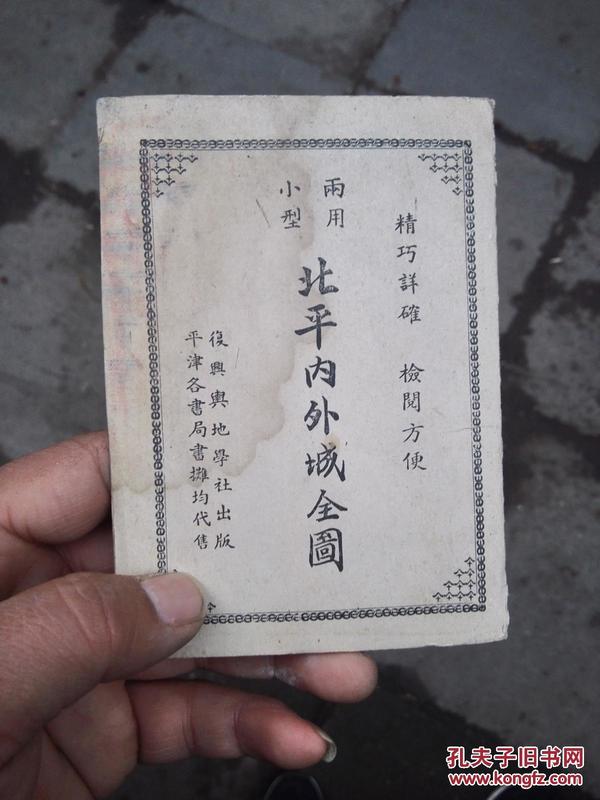 精巧詳確 檢閱方便
兩用
小型
北平內外城全圖
復興輿地學社出版
平津各書局書攤均代售
孔夫子旧书网
www.kongfz.com